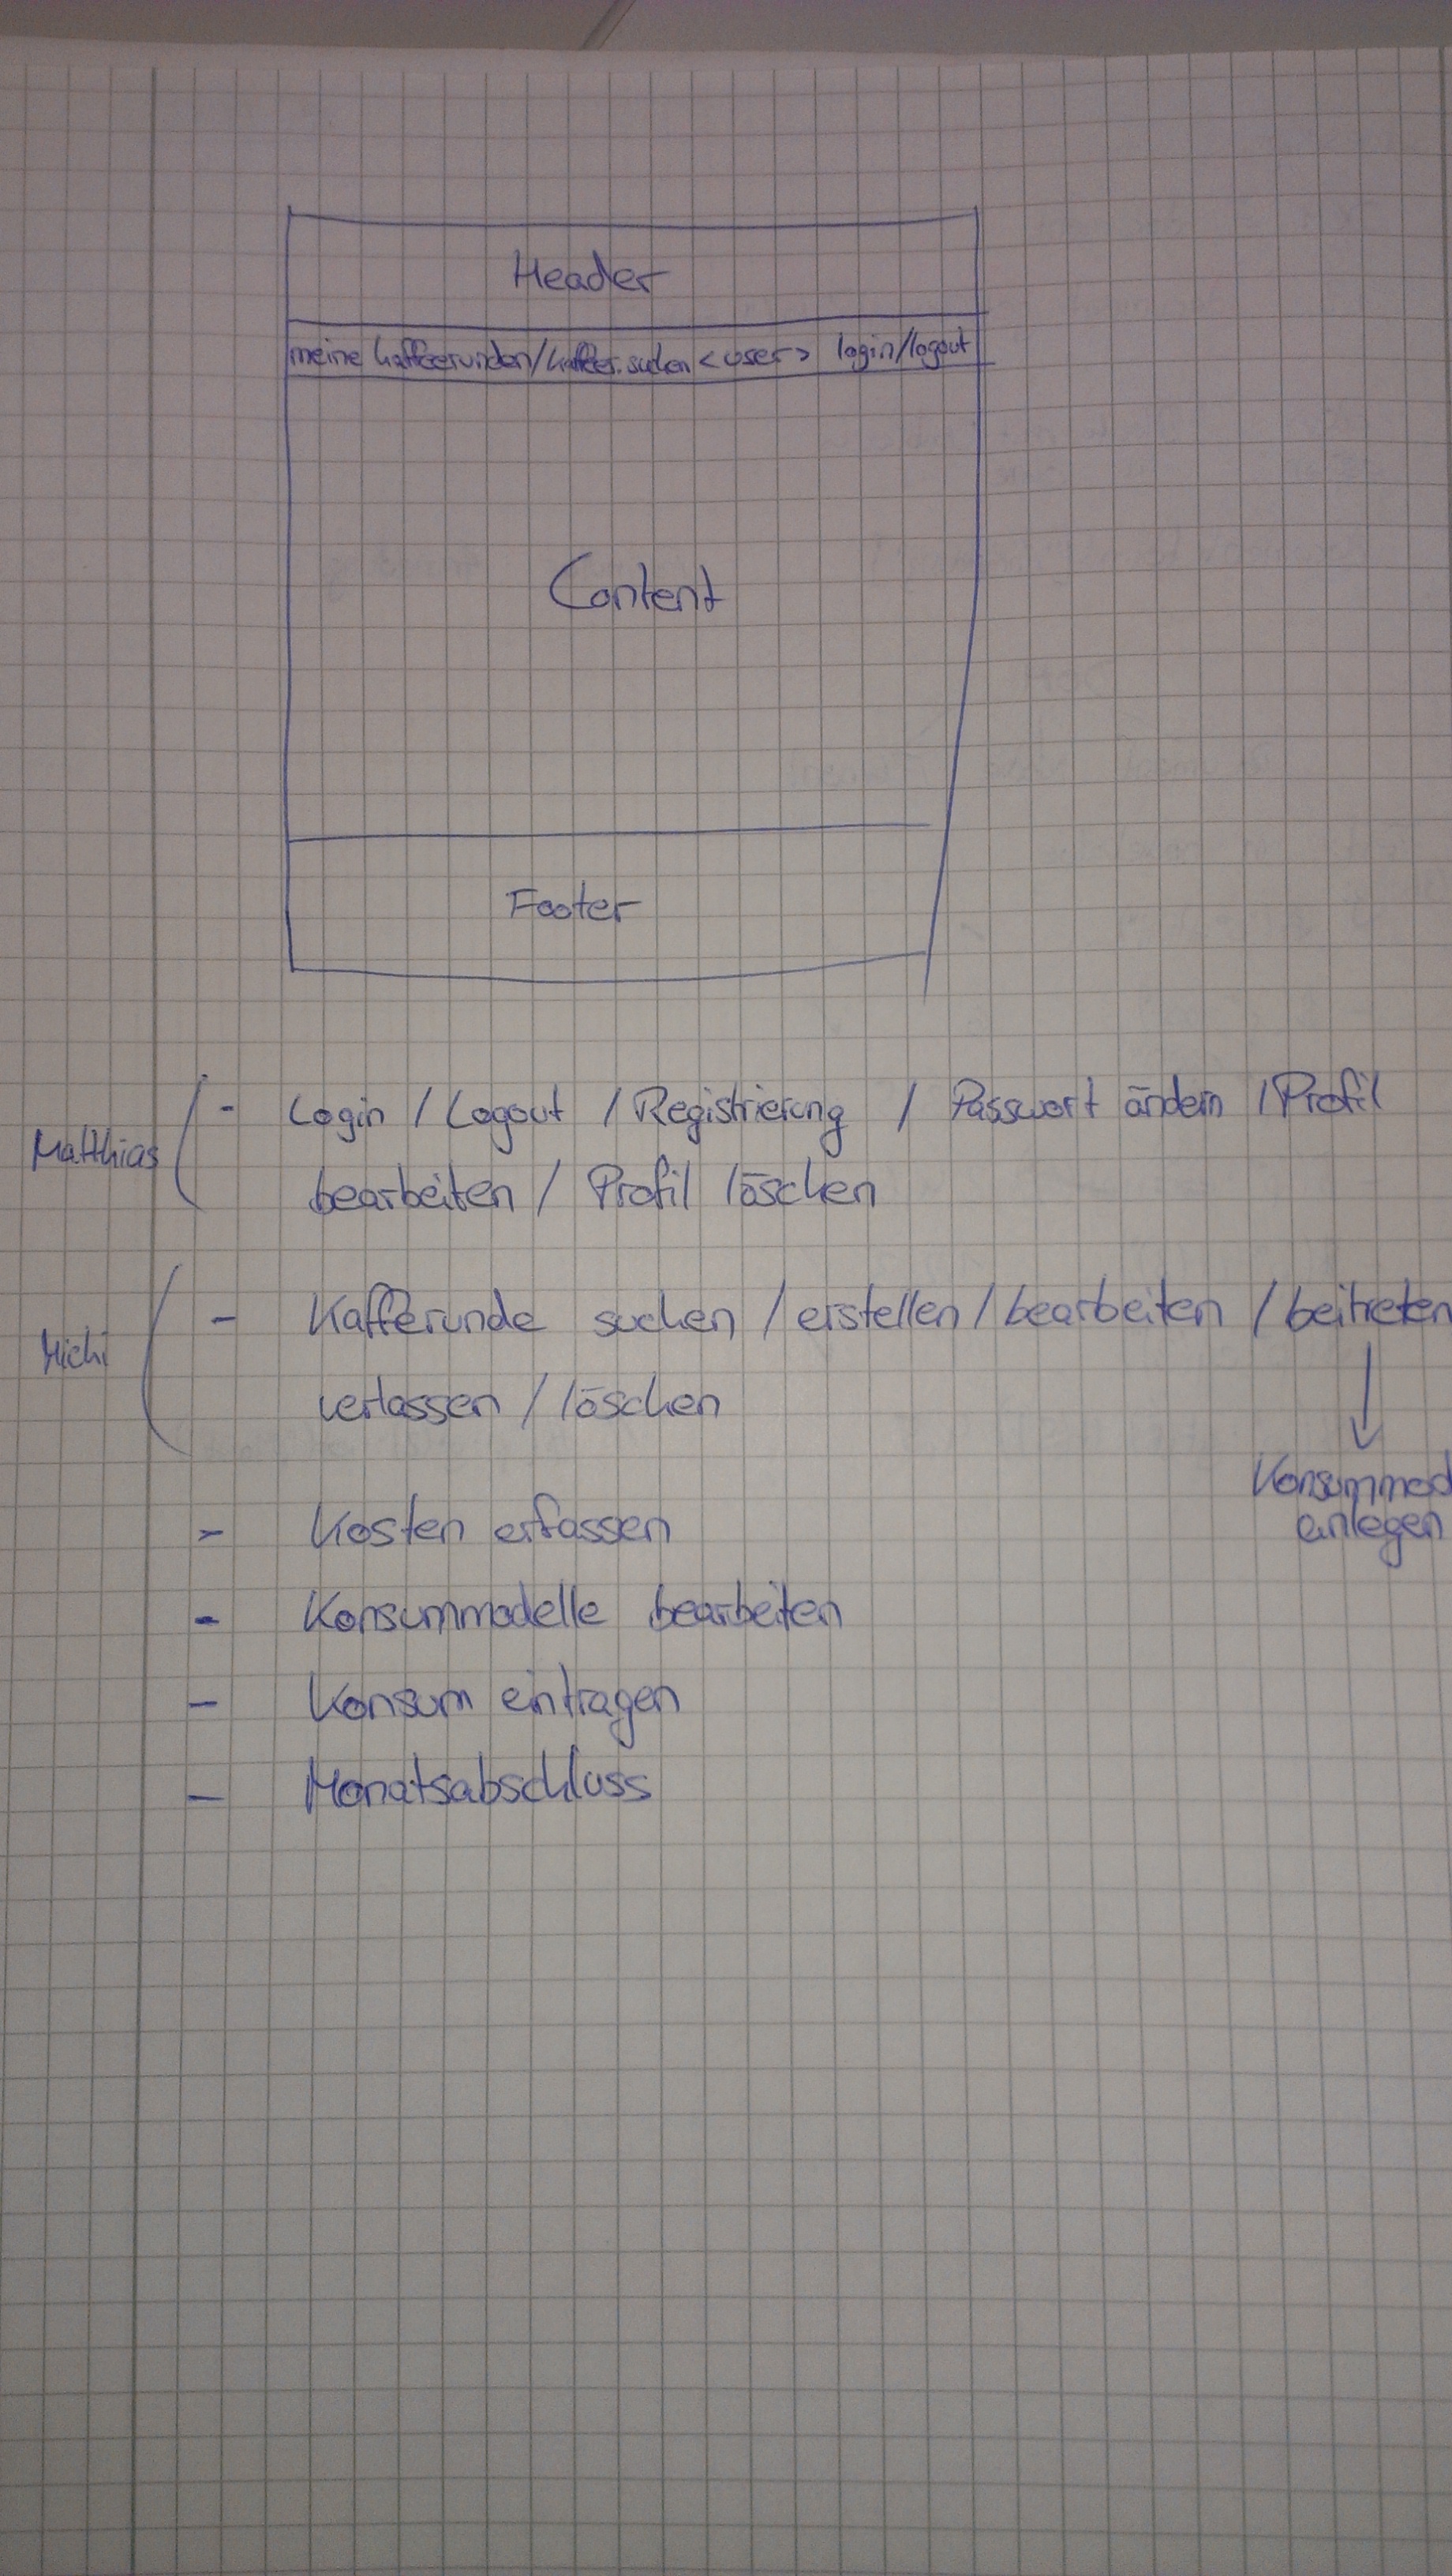 Header
meine Kaffeerunden/Kaffeer. suchen <user> login/logout
Content
Footer
Matthias
- Login / Logout / Registrierung / Passwort ändern / Profil
bearbeiten / Profil löschen
Michi
- Kafferunde suchen / erstellen / bearbeiten / beitreten
verlassen / löschen
Konsummod
anlegen
- Kosten erfassen
- Konsummodelle bearbeiten
- Konsum eintragen
- Monatsabschluss